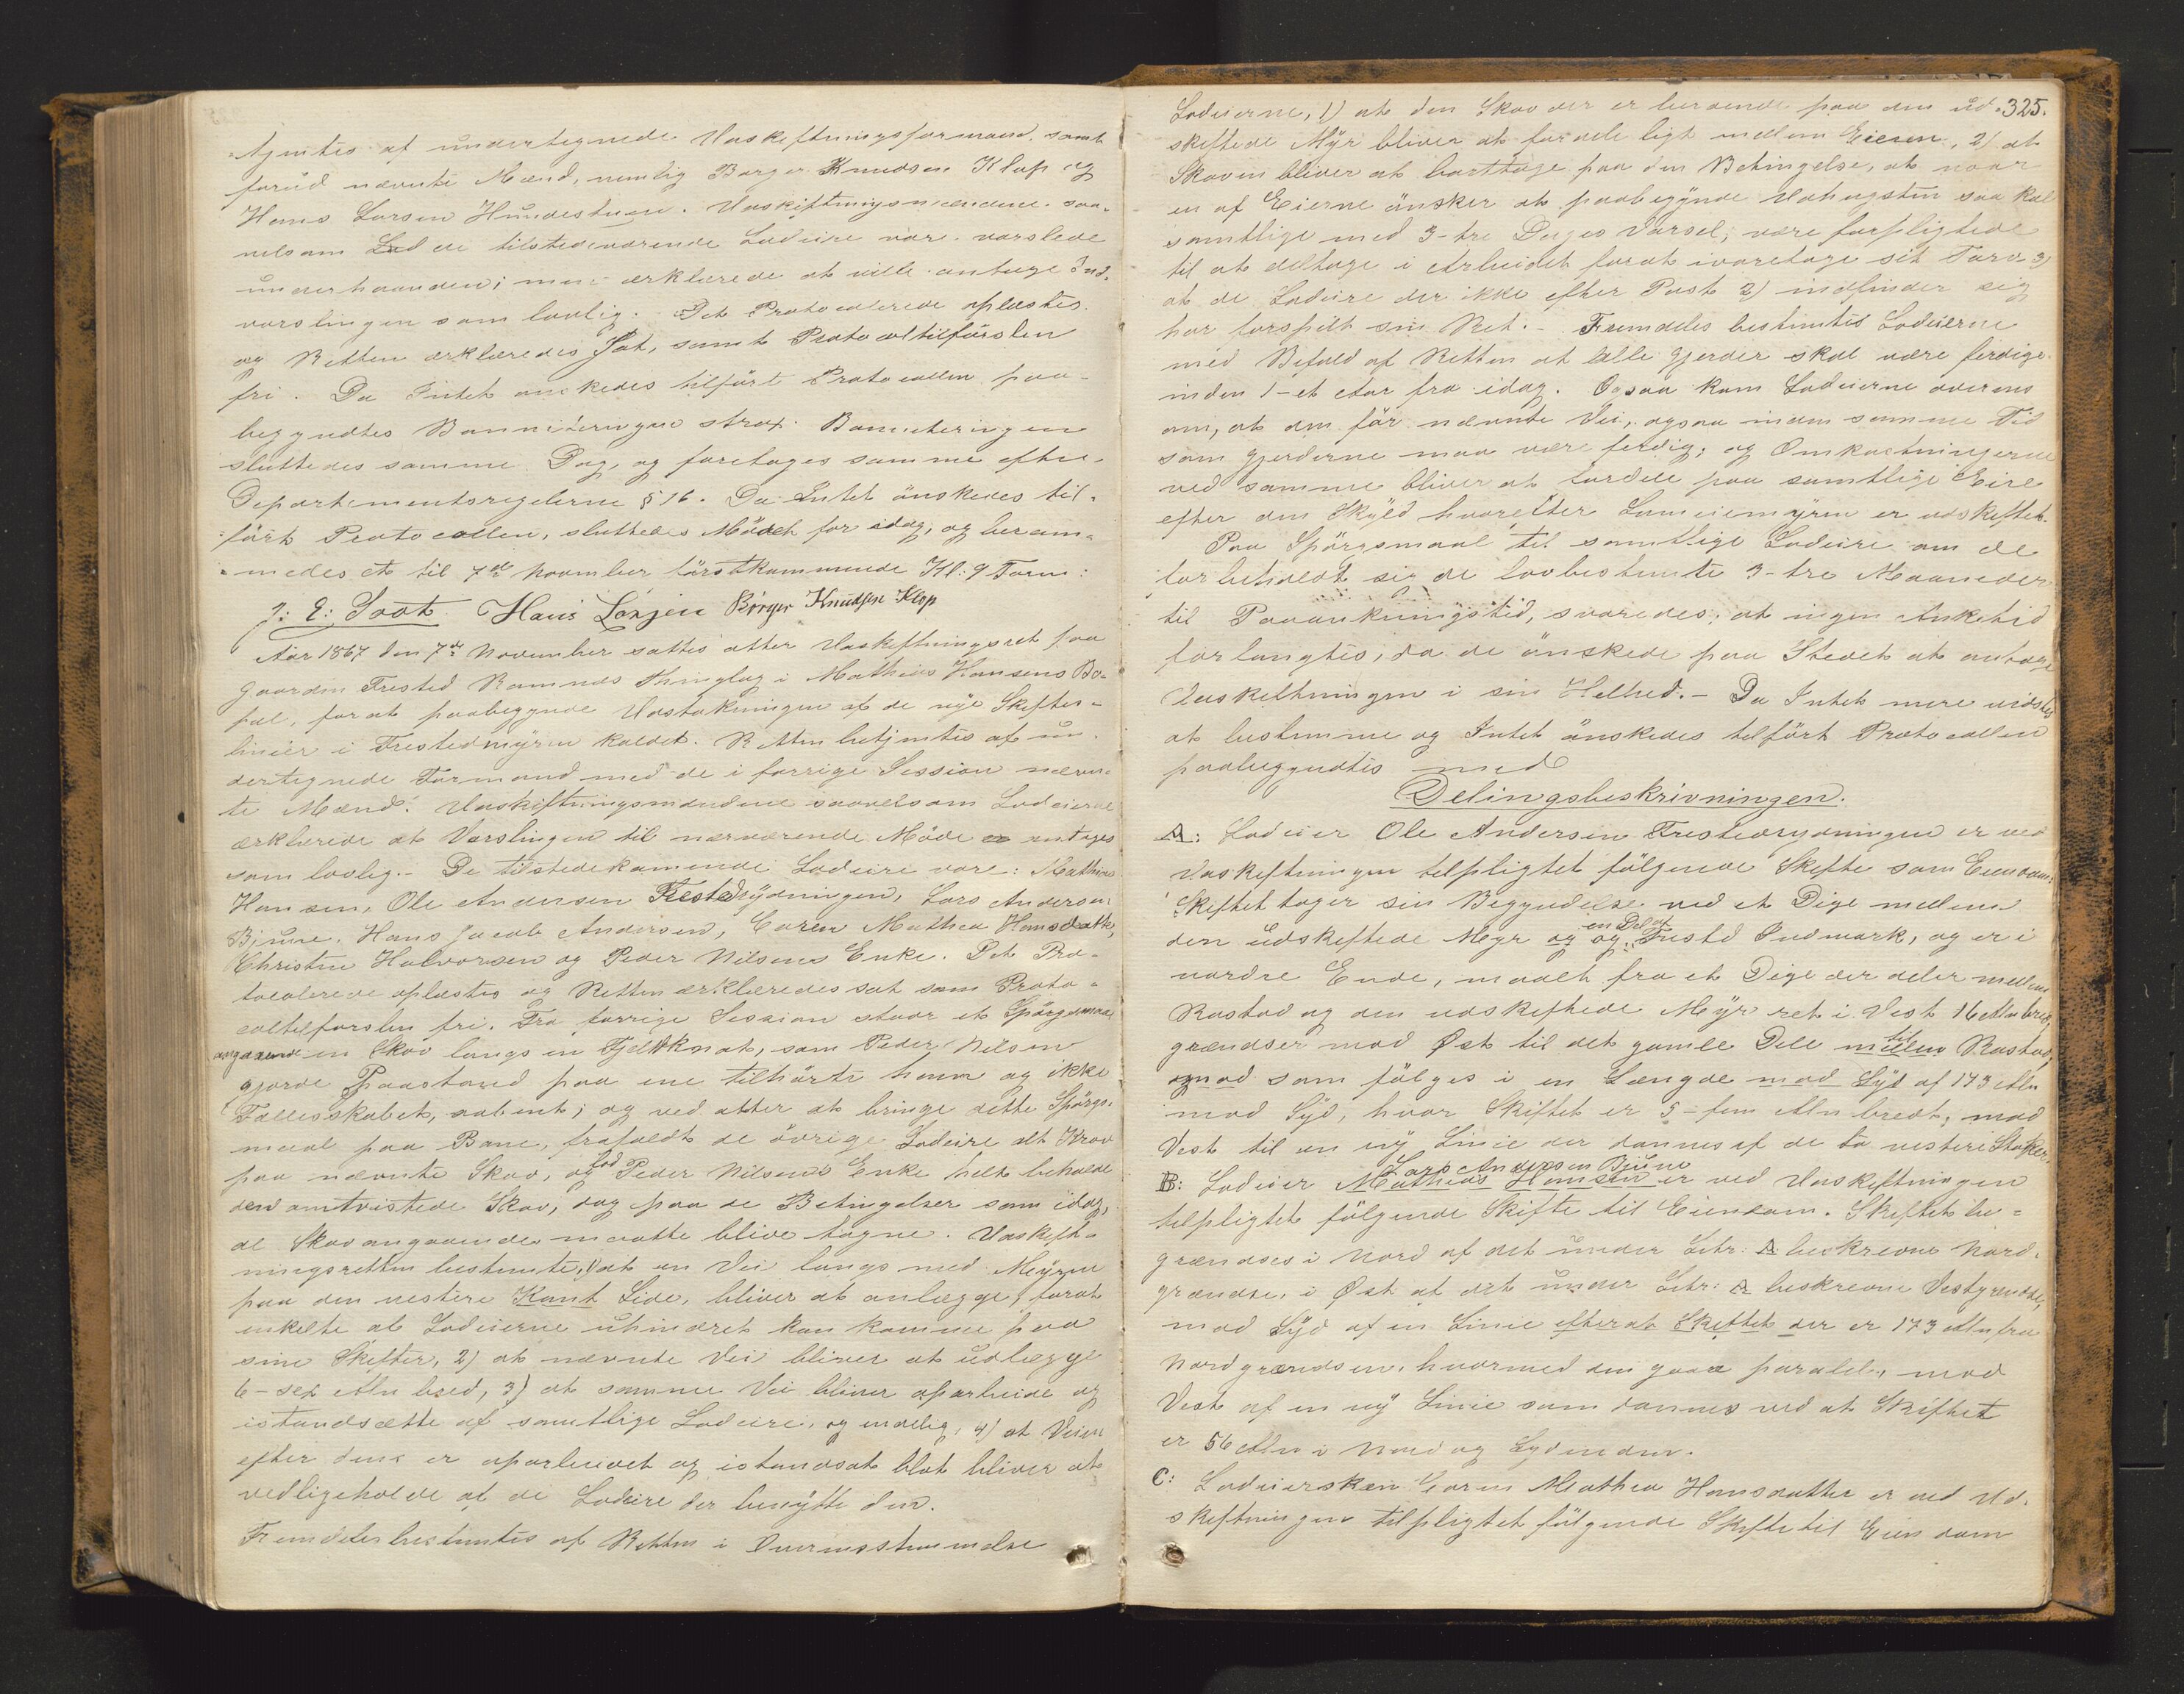 tjentes af undertegnede Udskiftningsformand, samt
forud nævnte Mænd, nemlig Borger Knudsen Klop og
Hans Larsen Hundestuen. Udskiftningsmændene saa-
velsom Lod de tilstedeværende Lodeiere vare varslede
underhaanden; men erklærede at ville antage Ind-
varslingen som lovlig. Det Protocolerede oplæstes
og Retten erklæredes sat, samt Protocoltilførslen
fri. Da Intet önskedes tilfört Protocollen paa-
begyndtes Boniteringen strax. Boniteringen
sluttedes samme Dag, og foretages samme efter
Departementsregelerne § 16. Da Intet önskedes til-
fört Protocollen, sluttedes Mödet for idag, og beram-
medes et til 7de November förstkommende Kl: 9 Form:
J: E: Soot Hans Larsen Börger Knudsen Klop
Aar 1867 den 7de November sattes atter Udskiftningsret paa
Gaarden Frested Ramnes Thinglag i Mathias Hansens Bo-
pæl, for at paabegynde Udstakningen af de nye Skiftes-
linier i Frestedmyren kaldet. Retten betjentes af un-
dertegnede Formand med de i forrige Session nævn-
te Mænd. Udskiftningsmændene saavelsom Lodeierne
erklærede at Varslingen til nærværende Möde er antages
som lovlig. – De tilstedekomende Lodeiere vare: Mathias
Hansen, Ole Andersen Frestedrydningen, Lars Andersen
Bjune, Hans Jacob Andersen, Caren Mathea Hansdatter,
Christen Halvorsen og Peder Nilsens Enke. Det Pro-
tocolerede oplæstes og Retten erklæredes sat samt Proto-
coltilforslen fri. Fra forrige Session staar et Spörgsmaal
angaaende en Skov langs en Fjeldknat, som Peder Nilsen
gjorde Paastand paa ene tilhörte ham og ikke
Fællesskabet, aabent; og ved atter at bringe dette Spörgs-
maal paa Bane, frafaldt de övrige Lodeiere alt Krav
paa nævnte Skov, og lod Peder Nilsens Enke helt beholde
den omtvistede Skov, dog paa de Betingelser som idag,
al Skov angaaende maatte blive tagne. Udskift-
ningsretten bestemte, 1) at en Vei langs med Myren
paa den vestere Kant Side, bliver at anlægge, forat
enkelte af Lodeierne uhindret kan komme paa
sine Skifter, 2) at nævnte Vei bliver at udlægge
6 – sex Alen bred, 3) at samme Vei bliver oparbeide og
istandsætte af samtlige Lodeiere, og endelig, 4) at Veien
efter den er oparbeidet og istandsat blot bliver at
vedligeholde af de Lodeiere der benytte den.
Fremdeles bestemtes af Retten i Overensstemmelse
325.
Lodeierne, 1) at den Skov der er beroende paa den ud-
skiftede Myr bliver at fordele ligt mellem Eieren, 2) at
Skoven bliver at borttage paa den Betingelse, at naar
en af Eierne önsker at paabegynde Udhugsten saa skal
samtlige med 3-tre Dages Varsel, være forpligtede
til at deltage i Arbeidet forat ivaretage sit Tarv. 3)
at de Lodeiere der ikke efter Post 2) indfinder sig
har forspilt sin Ret. – Fremdeles bestemtes Lodeierne
med Bifald af Retten at alle Gjerder skal være ferdige
inden 1-et Aar fra idag. Ogsaa kom Lodeierne overens
om, at den för nævnte Vei, ogsaa inden samme Tid
som gjerderne maa være ferdig, og Omkostningerne
ved samme bliver at fordele paa samtlige Eiere
efter den Skyld hvorefter Lumiemyren er udskiftet.
Paa Spörgsmaal til samtlige Lodeiere om de
forbeholdt sig de lovbestemte 3-tre Maaneder
til Paaankningstid, svaredes, at ingen Anketid
forlangtes, da de önskede paa Stedet at antage
Udskiftningen i sin Helhed. – Da Intet mere vidstes
at bestemme og Intet önskedes tilfört Protocollen
paabegyndtes med
Delingsbeskrivningen.
A: Lodeier Ole Andersen Frestedrydningen er ved
Udskiftningen tilpligtet fölgende Skifte som Eiendom.
Skiftet tager sin Begyndelse ved et Dige mellem
den udskiftede Myr og og en Del af Frested Indmark, og er i
nordre Ende, maalt fra et Dige der deler mellem
Rastad og den udskiftede Myr ret i Vest 16 Aln bred,
grændser mod Øst til det gamle Dele mellem til Rastad,
og mod som fölges i en Længde mod Syd af 173 Aln
mod Syd, hvor Skiftet er 5 – fem Aln bredt, mod
Vest til en ny Linie der dannes af de to vestere Stakker.
B: Lodeier Mathias Hansen Lars Andersen Bjune er ved Udskiftningen
tilpligtet fölgende Skifte til Eiendom. Skiftet be-
grændses i Nord af det under Litr: A beskrevne Nord-
grændse, i Øst af det under Litr: A beskrevne Vestgrændse,
mod Syd af en Linie efterat Skiftet der er 173 Aln fra
Nordgrændsen, hvormed den gaar paralel, mod
Vest af en ny Linie som dannes ved at Skiftet
er 56 Aln i Nord og Sydenden.
C: Lodeiersken Caren Mathea Hansdatter er ved Ud-
skiftningen tilpligtet fölgende Skifte til Eiendom